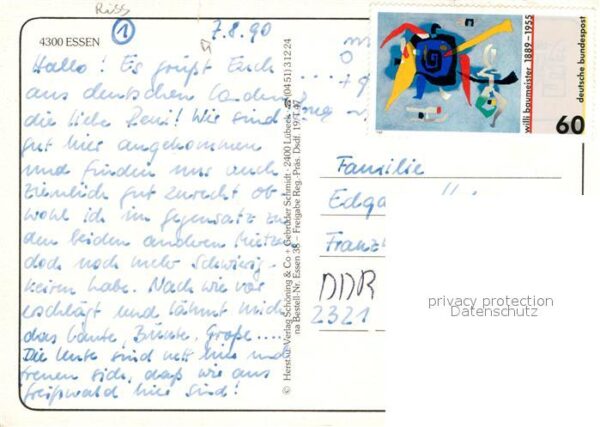 Riss
4300 ESSEN
1
7.8.90
Hallo! Es grüßt Euch
aus deutschen Landen
die liebe Reni! Wir sind
gut hier angekommen
und finden uns auch
ziemlich gut zurecht ob
wohl ich im gegensatz zu
den beiden anderen
doch noch mehr Schwierig-
keiten habe. Nach wie vor
erschlägt und lähmt mich
das Laute, Bunte, Große....
Die Leute sind nett hier und
freuen sich, daß wir aus
Greifswald hier sind!
© Herst. u. Verlag Schöning & Co + Gebrüder Schmidt · 2400 Lübeck · (0451) 31224
na Bestell-Nr. Essen 38 – Freigabe Reg.-Präs. Dsdf. 19/T 47
willi baumeister 1889-1955
deutsche bundespost
60
Familie
Edga
Franz
DDR
2321
privacy protection
Datenschutz